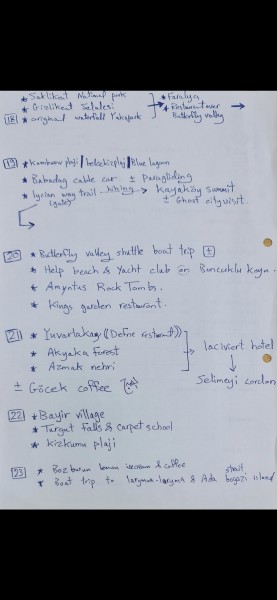 * Saklikent National park
* Gizlikent Selalesi
18 * original waterfall Yakapark
* Faralya
* Restaurant over
Butterfly valley
19 * Kumburnu plaji / belcekiz plaji / Blue lagoon
* Babadag cable car ± Paragliding
* lycian way trail hiking → Kayaköy summit
(gate) ± Ghost city visit.
20 * Butterfly valley shuttle boat trip ±
* Help beach & Yacht club on Buncuklu koyu.
* Amyntas Rock Tombs.
* Kings garden restaurant.
21 * Yuvarlakçay (Defne restaurant)
* Akyaka forest
* Azmak nehri
± Göcek coffee
laciviert hotel
Selimeyi cordon
22 * Bayir village
* Turgut Falls & carpet school
* Kizkumu plaji
23 * Bozburun lemon icecream & coffee
* Boat trip to larymna & Ada bogazi island